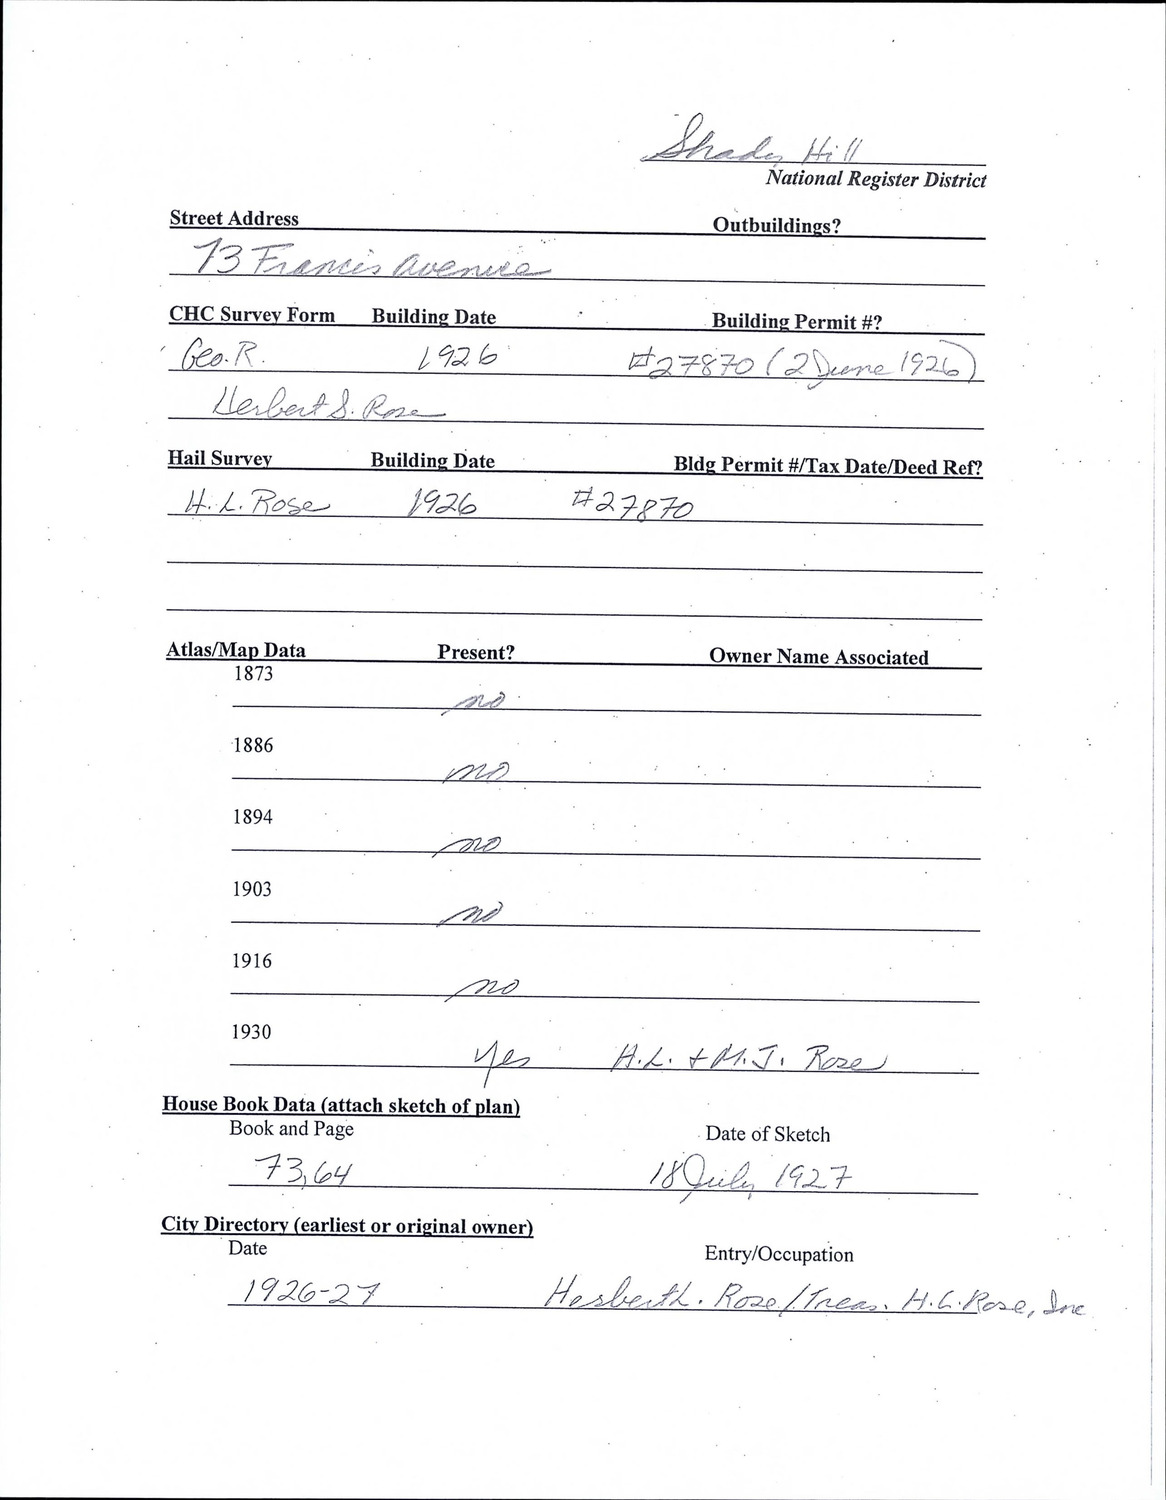 Shady Hill
National Register District
Street Address Outbuildings?
73 Francis Avenue
CHC Survey Form Building Date Building Permit #?
Geo. R. 1926 #27870 (2 June 1926)
Herbert S. Rose
Hail Survey Building Date Bldg Permit #/Tax Date/Deed Ref?
H. L. Rose 1926 #27870
Atlas/Map Data Present? Owner Name Associated
1873
no
1886
no
1894
no
1903
no
1916
no
1930
yes H.L. + M.J. Rose
House Book Data (attach sketch of plan)
Book and Page Date of Sketch
73,64 18 July 1927
City Directory (earliest or original owner)
Date Entry/Occupation
1926-27 Herbert L. Rose/Treas. H.L. Rose, Inc